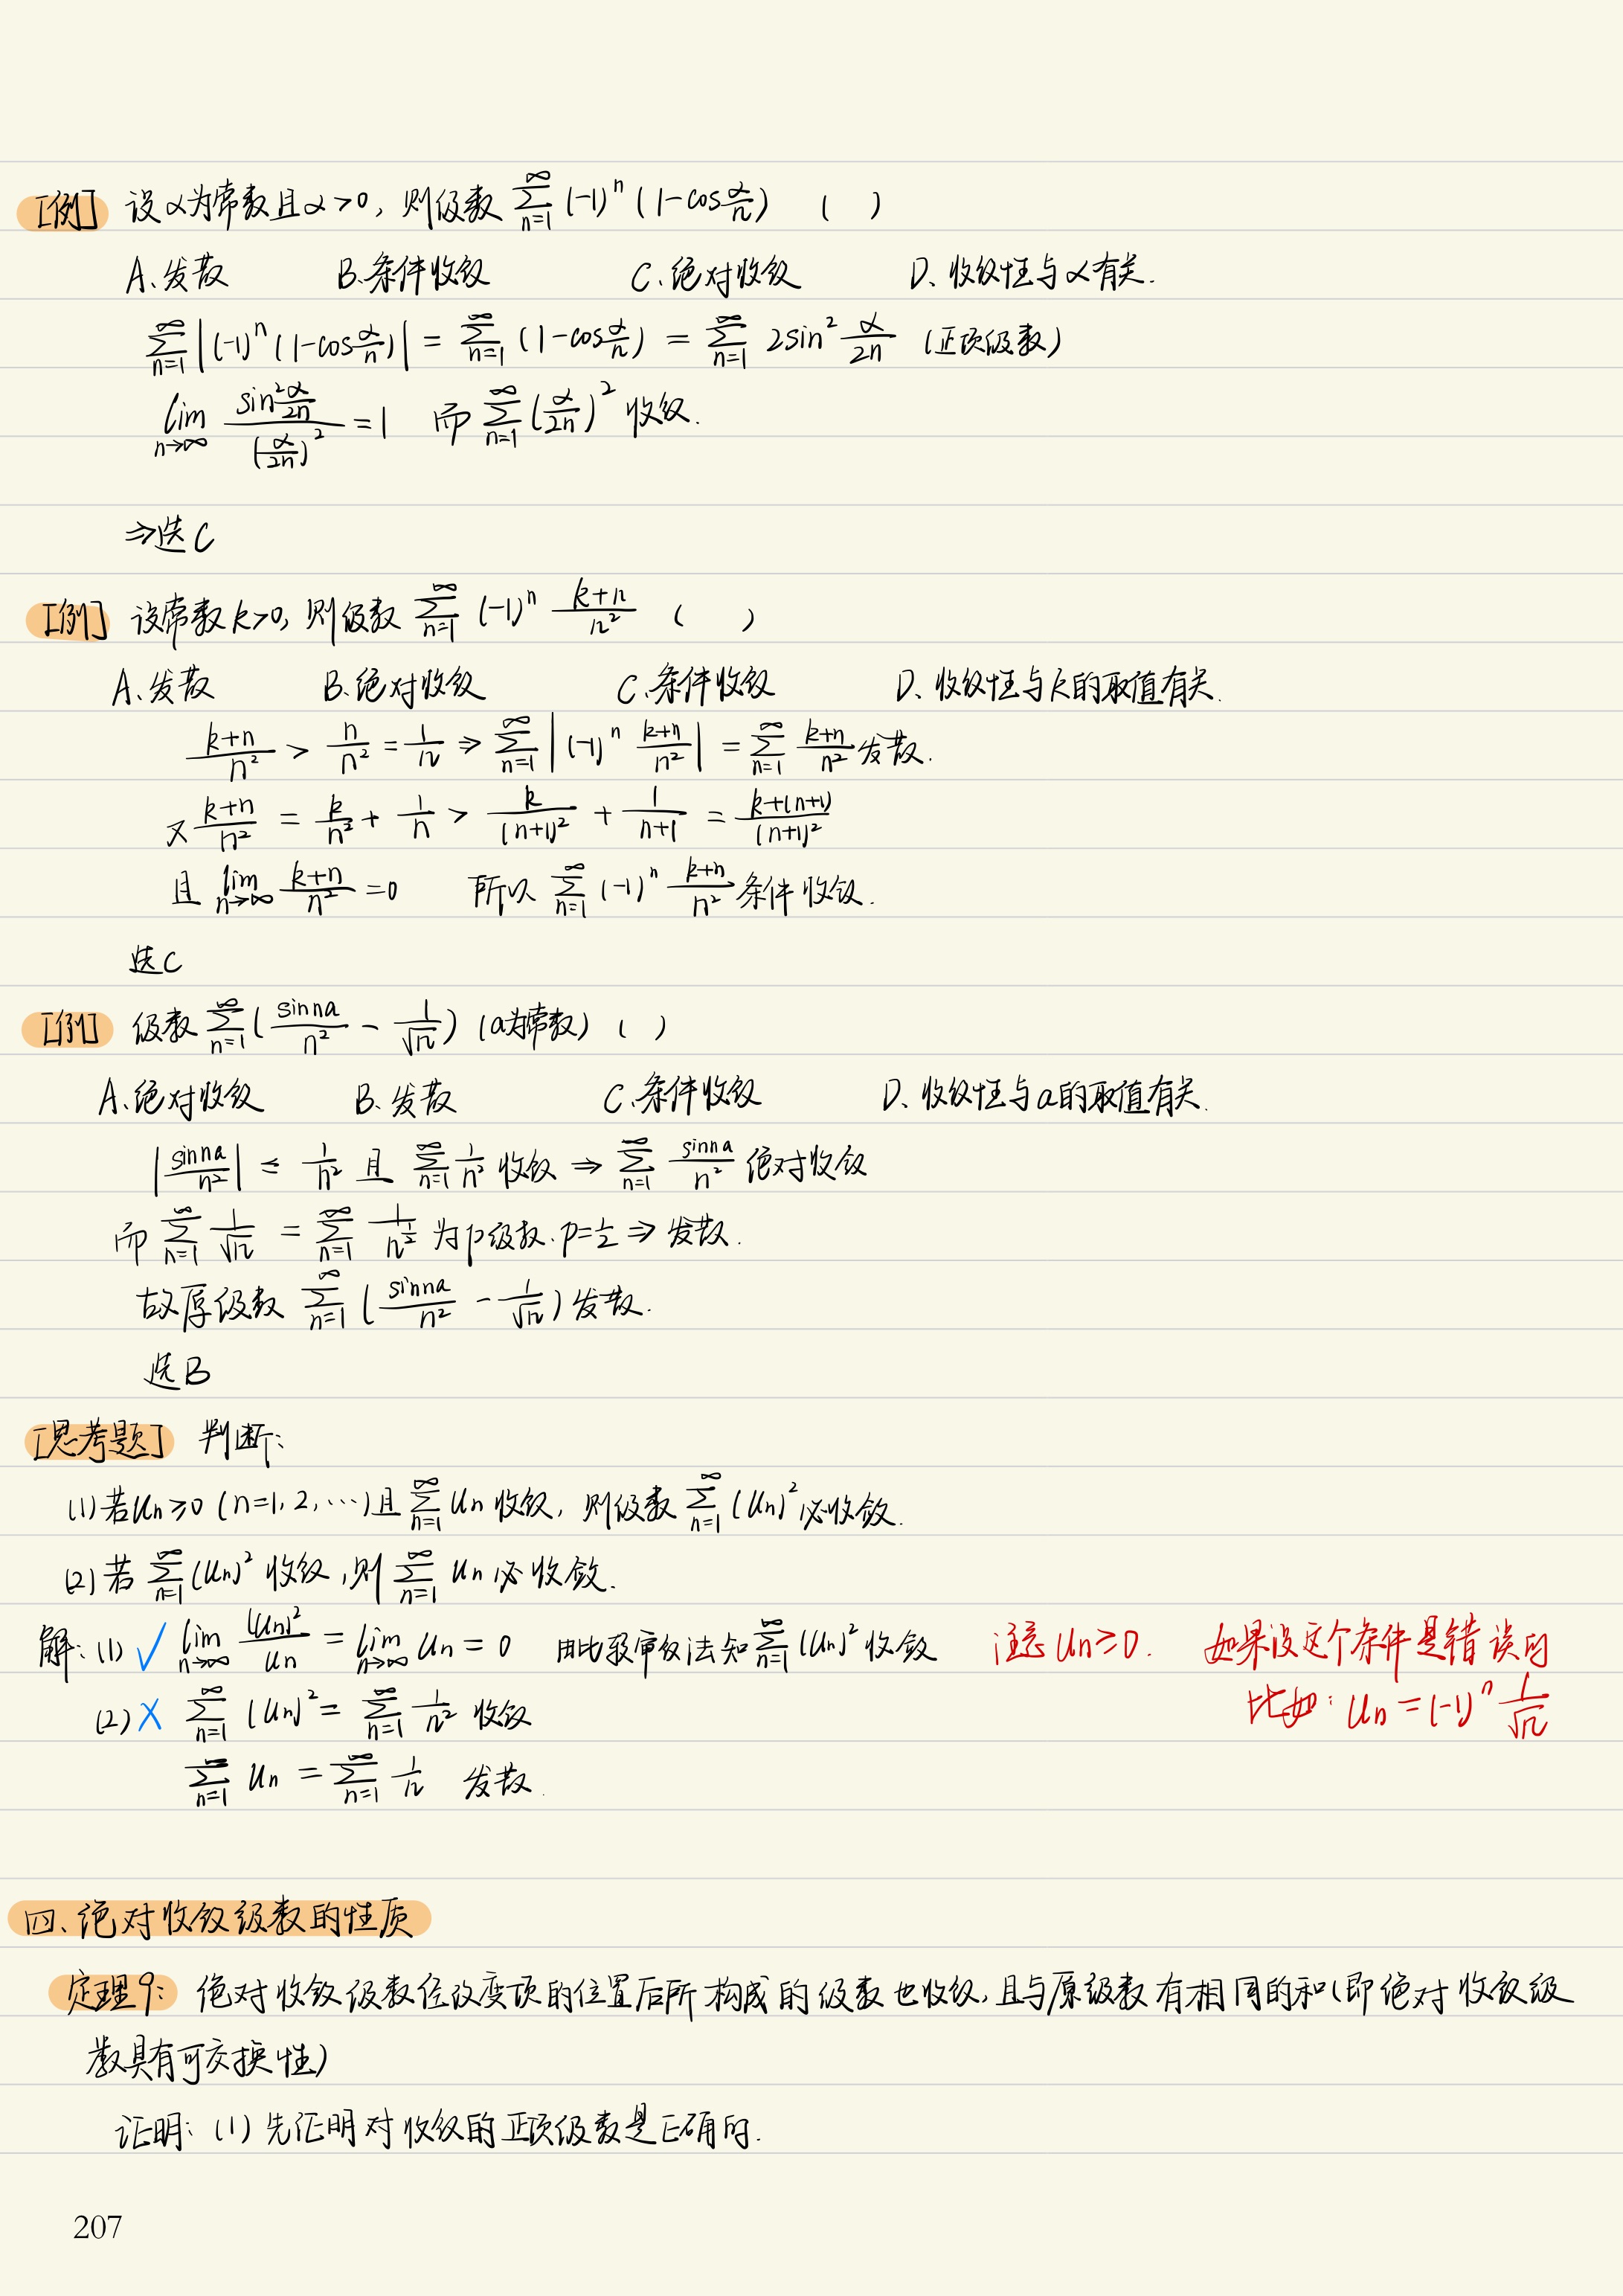 [例] 设α为常数且α>0, 则级数 ∑_{n=1}^{∞} (-1)^n (1-cos α/n) ( )
A、发散 B.条件收敛 C.绝对收敛 D、收敛性与α有关.
∑_{n=1}^{∞} |(-1)^n (1-cos α/n)| = ∑_{n=1}^{∞} (1-cos α/n) = ∑_{n=1}^{∞} 2sin² α/2n (正项级数)
lim_{n→∞} (sin² α/2n)/(α/2n)² = 1 而 ∑_{n=1}^{∞} (α/2n)² 收敛.
⇒选C
[例] 设常数k>0, 则级数 ∑_{n=1}^{∞} (-1)^n (k+n)/n² ( )
A、发散 B.绝对收敛 C.条件收敛 D、收敛性与k的取值有关.
(k+n)/n² > n/n² = 1/n ⇒ ∑_{n=1}^{∞} |(-1)^n (k+n)/n²| = ∑_{n=1}^{∞} (k+n)/n² 发散.
又 (k+n)/n² = k/n² + 1/n > k/(n+1)² + 1/(n+1) = (k+(n+1))/(n+1)²
且 lim_{n→∞} (k+n)/n² = 0 所以 ∑_{n=1}^{∞} (-1)^n (k+n)/n² 条件收敛.
选C
[例] 级数 ∑_{n=1}^{∞} (sin na/n² - 1/√n) (a为常数) ( )
A.绝对收敛 B、发散 C.条件收敛 D、收敛性与a的取值有关.
|sin na/n²| ≤ 1/n² 且 ∑_{n=1}^{∞} 1/n² 收敛 ⇒ ∑_{n=1}^{∞} sin na/n² 绝对收敛
而 ∑_{n=1}^{∞} 1/√n = ∑_{n=1}^{∞} 1/n^{1/2} 为p级数. p=1/2 ⇒ 发散.
故原级数 ∑_{n=1}^{∞} (sin na/n² - 1/√n) 发散.
选B
[思考题] 判断:
(1) 若Un≥0 (n=1,2,⋯) 且 ∑_{n=1}^{∞} Un 收敛, 则级数 ∑_{n=1}^{∞} (Un)² 必收敛.
(2) 若 ∑_{n=1}^{∞} (Un)² 收敛, 则 ∑_{n=1}^{∞} Un 必收敛.
解: (1) ✓ lim_{n→∞} (Un)²/Un = lim_{n→∞} Un = 0 用比较审敛法知 ∑_{n=1}^{∞} (Un)² 收敛 注意 Un≥0. 如果没这个条件是错误的
比如: Un = (-1)^n 1/√n
(2) × ∑_{n=1}^{∞} (Un)² = ∑_{n=1}^{∞} 1/n² 收敛
∑_{n=1}^{∞} Un = ∑_{n=1}^{∞} 1/n 发散.
四、绝对收敛级数的性质
定理9: 绝对收敛级数经改变项的位置后所构成的级数也收敛, 且与原级数有相同的和(即绝对收敛级
数具有可交换性)
证明: (1) 先证明对收敛的正项级数是正确的.
207